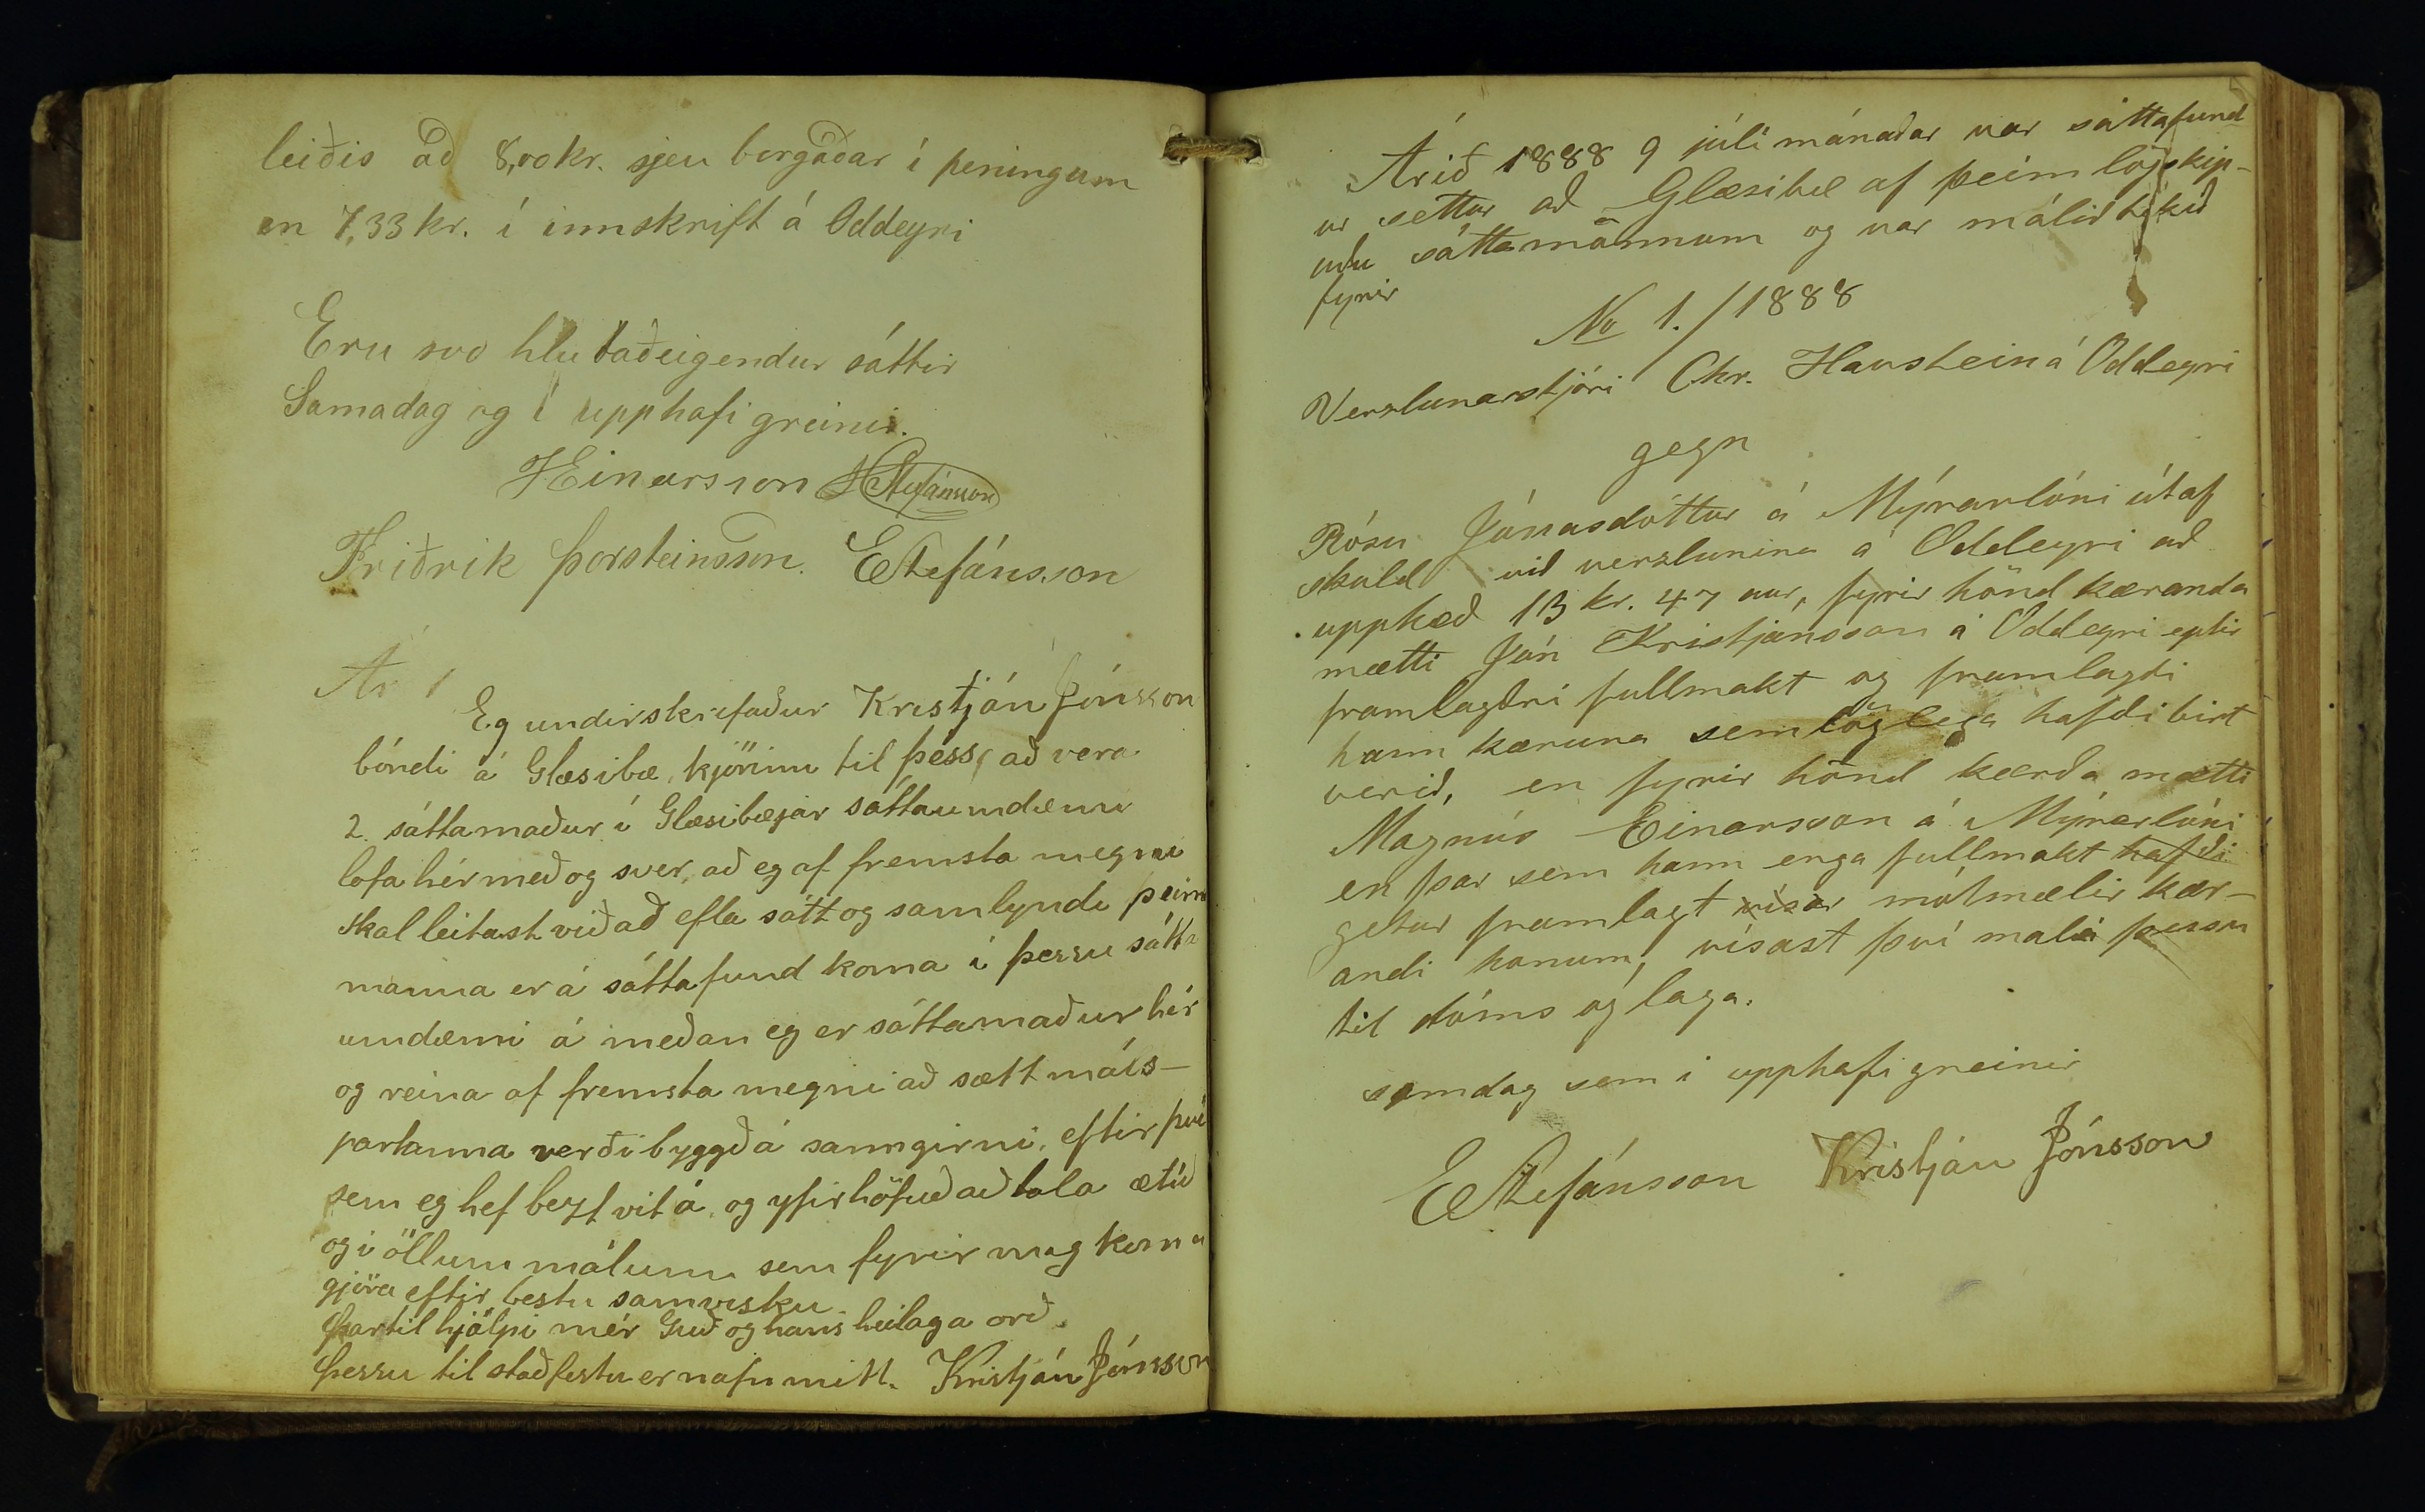 leiðis að 8,00 kr. sjeu borgaðar í peningum
en 7,33 kr. í innskrift á Oddeyri
Eru svo hlutaðeigendur sáttir
Samadag og í upphafi greinir.
HEinarsson HStefánsson
Friðrik Þorsteinsson. EStefánsson
Ár 1
Eg undirskrifaður Kristján Jónsson
bóndi á Glæsibæ, kjörinn til þess, að vera
2. sáttamaður í Glæsibæjar sáttaumdæmi
lofa hér með og sver, að eg af fremsta megni
skal leitast við að efla sátt og samlyndi þeirra
manna er á sáttafund koma í þessu sátta
umdæmi á meðan eg er sáttamaður hér
og reina af fremsta megni að sætt máls-
partanna verði byggð á sanngirni, eftir því
sem eg hef bezt vit á, og yfir höfuð að tala ætíð
og í öllum málum sem fyrir mig koma
gjöra eftir bestu samvisku.
Þar til hjálpi mér Guð og hans heilaga orð.
Þessu til staðfestu er nafn mitt. Kristján Jónsson
Árið 1888 9 júlí mánaðar var sáttafund
ur settur að Glæsibæ af þeim lögskip-
uðu sáttamönnum og var málið tekið
fyrir
No 1./1888
Verzlunarstjóri Chr. Havstein á Oddeyri
gegn
Rósu Jónasdóttur á Mýrarlóni útaf
skuld við verzlunina á Oddeyri að
upphæð 13 kr. 47 aur, fyrir hönd kæranda
mætti Jón Kristjánsson á Oddeyri eptir
framlagðri fullmakt og framlagði
hann kæruna sem löglega hafði birt
verið, en fyrir hönd kærða mætti
Magnús Einarsson á Mýrarlóni
en þar sem hann enga fullmakt hafði
getur framlagt vísar mótmælir kær-
andi honum, vísast því máli þessu
til dóms og laga.
samdag sem í upphafi greinir
EStefánsson Kristján Jónsson